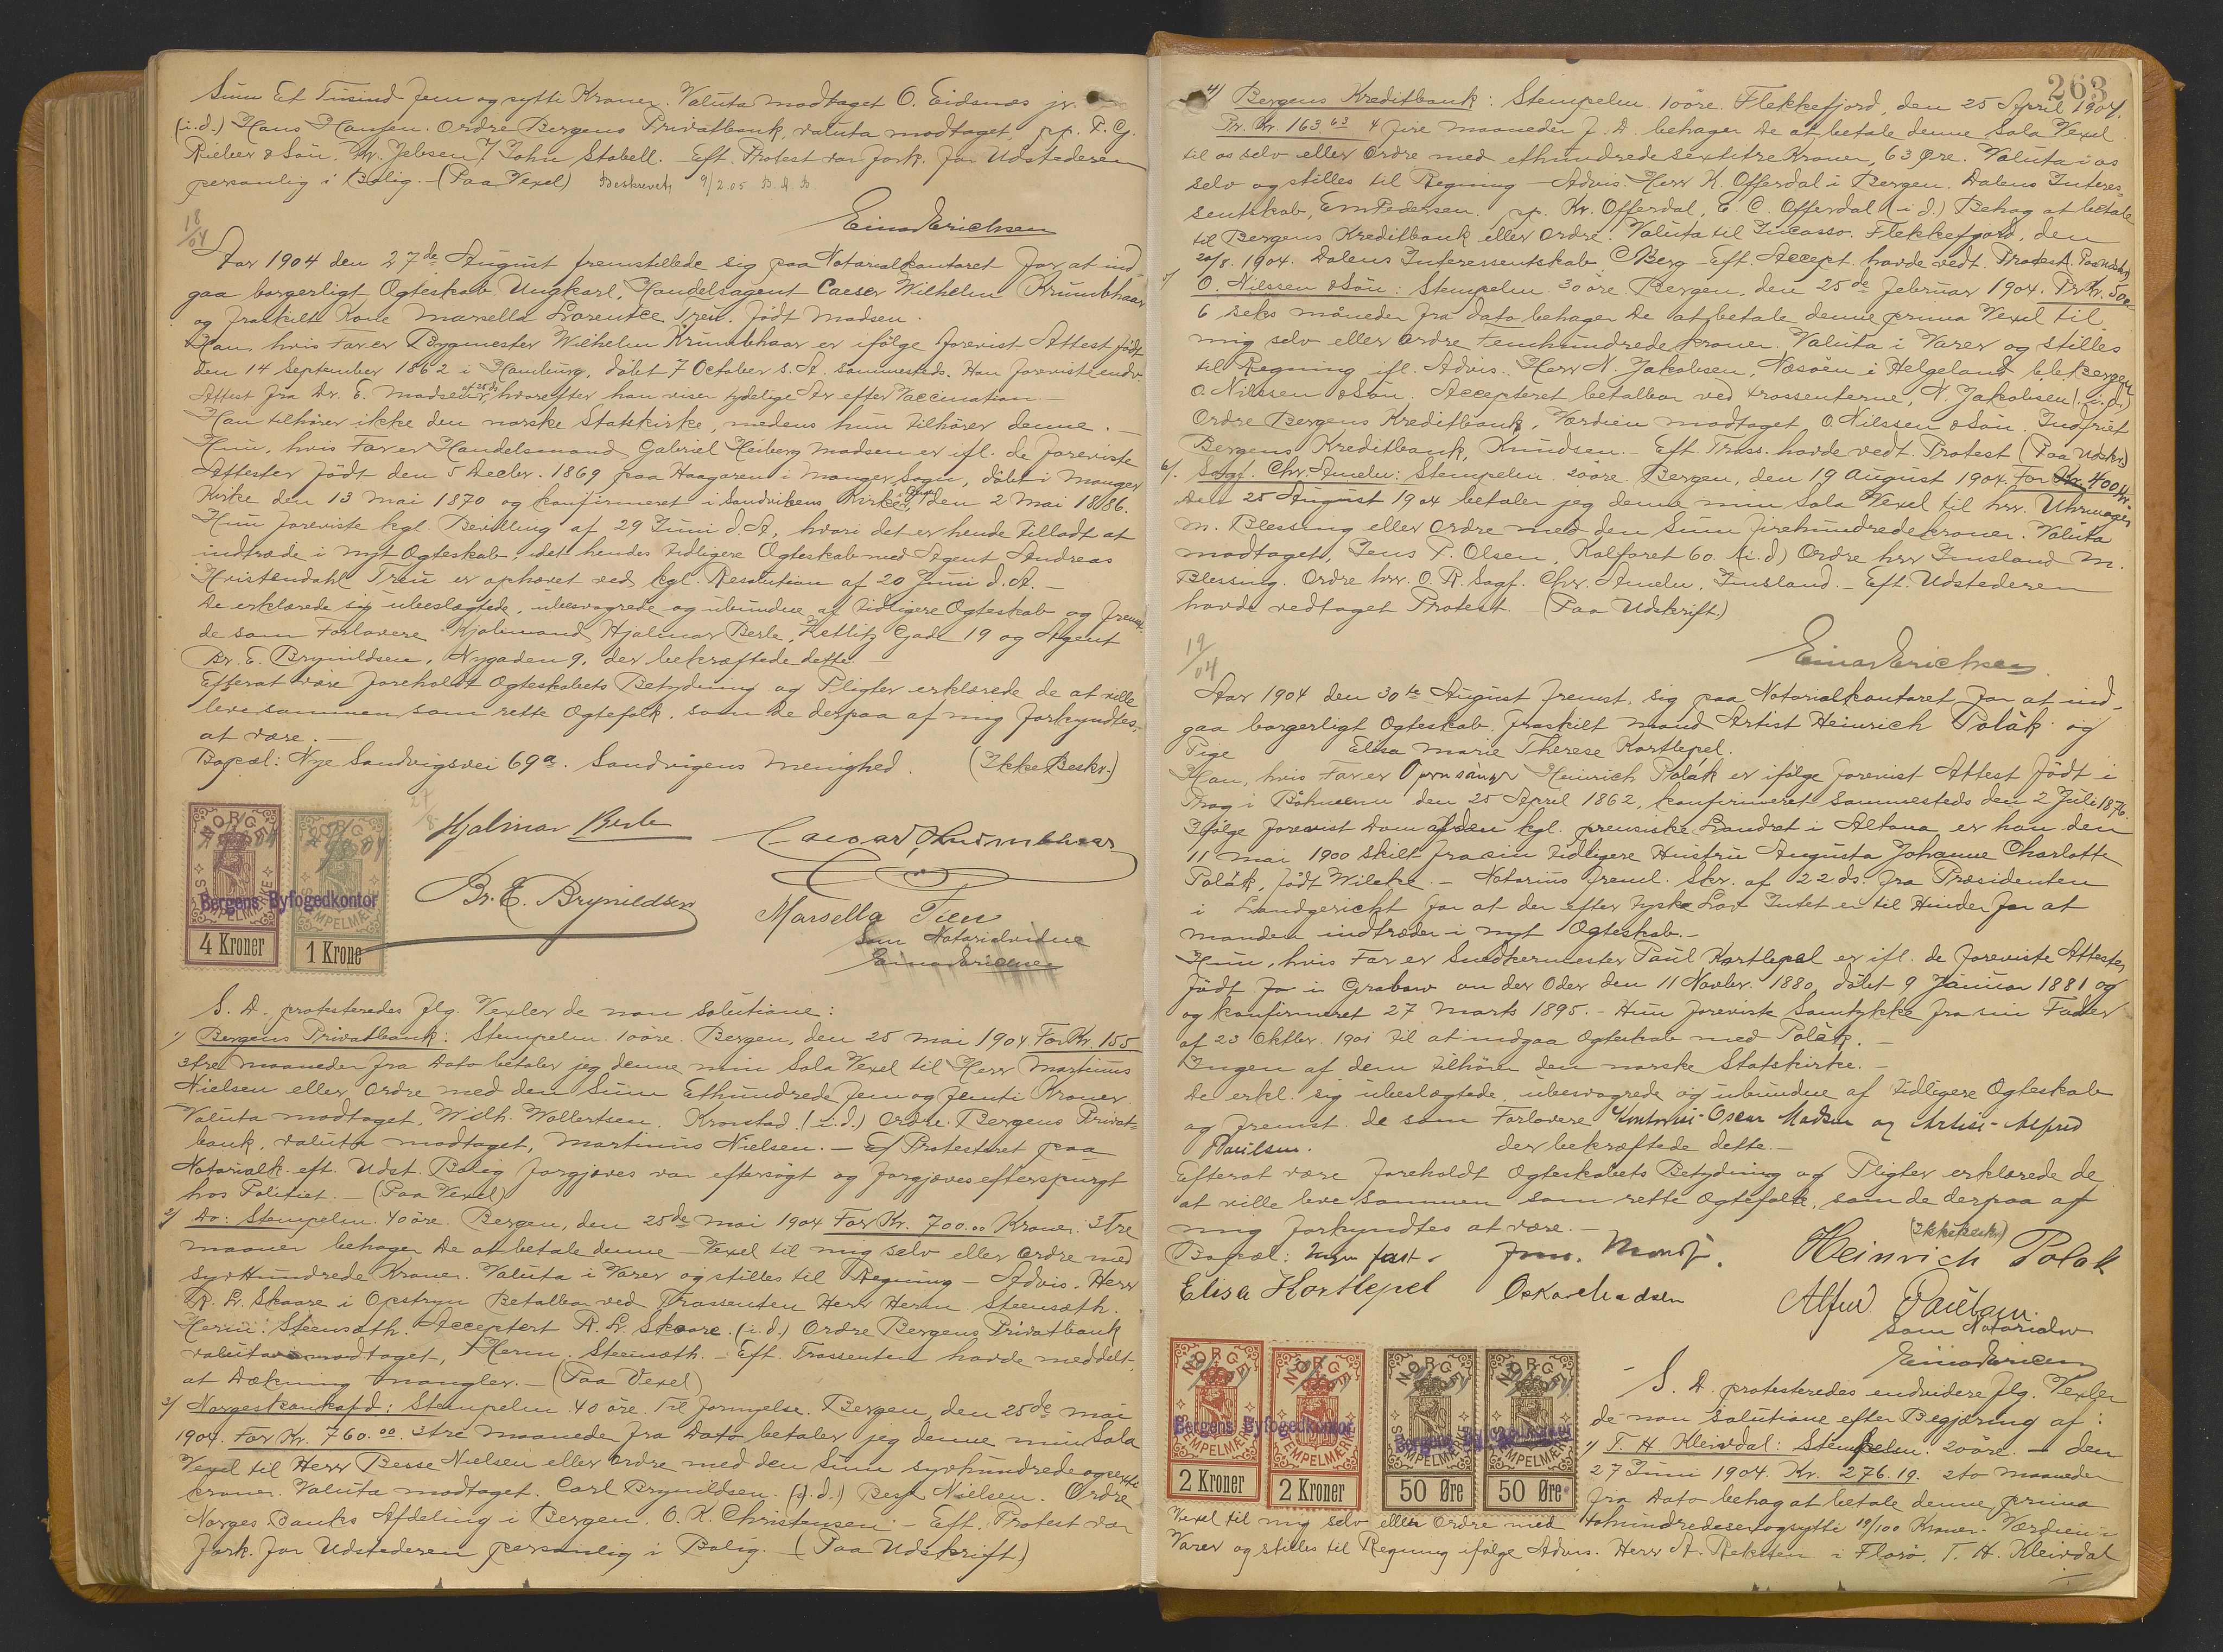 Sum Et Tusind fem og sytti Kroner. Valuta modtaget O. Eidsnæs jr.
(i.d.) Hans Hansen. Ordre Bergens Privatbank, valuta modtaget, pp. P. G.
Rieber & Søn. Kr. Jebsen / John Stabell. Eft. Protest var fork. for Udstederen
personlig i Bolig. - (Paa Vexel) Beskrevet 9/2.05
Einar Erichsen
18/04
Aar 1904 den 27de August fremstillede sig paa Notarialkontoret for at ind-
gaa borgerligt Ogteskab Ungkarl, Handelsagent Caeser Wilhelm Krumbhaar
og fraskilt Kone Marsella Lorentze Treu. født Madsen.
Han, hvis Far er Bygmester Wilhelm Krumbhaar er ifølge forevist Attest født
den 14 September 1862 i Hamburg, døbt 7 October s. A. sammesteds. Han foreviste endv.
Attest fra Dr. E. Madsen af 25 ds, hvorefter han viser tydelige Ar efter Vaccination. -
Han tilhører ikke den norske Statskirke, medens hun tilhører denne. -
Hun, hvis Far er Handelsmand Gabriel Heiberg Madsen er ifl. de foreviste
Attester født den 5 Decbr. 1869 paa Haagaren i Manger Sogn, døbt i Manger
Kirke den 13 Mai 1870 og konfirmeret i Sandvikens Kirke den 2 Mai 1886.
Hun foreviste kgl. Bevilling af 29 Juni d. A, hvori det er hende tilladt at
indtræde i nyt Ogteskab, idet hendes tidligere Ogteskab med Agent Andreas
Kristendahl Treu er ophævet ved kgl. Resolution af 20 Juni d. A. -
De erklærede sig ubeslægtede, ubesvogrede og ubundne af tidligere Ogteskab og fremst.
de som Forlovere Kjøbmand Hjalmar Berle, Ketlitz Gade 19 og Agent
Br. E. Brynildsen, Nygaden 9, der bekræftede dette -
Efterat være foreholdt Ogteskabets Betydning og Pligter erklærede de at ville
leve sammen som rette Ogtefolk, som de derpaa af mig forkyndtes
at være. -
Bopæl: Nye Sandvigsvei 69a. Sandvigens Menighed. (Ikke Beskr.)
27/8
Hjalmar Berle
Caesar Krumbhaar
Br. E. Brynildsen
Marsella Treu
Som Notarialvidne
Einar Erichsen
NORGE
STEMPELMÆRKE
4 Kroner
NORGE
STEMPELMÆRKE
1 Krone
Bergens Byfogedkontor
S. D. protesteredes flg. Vexler de non solutione:
1) Bergens Privatbank: Stempelm. 10 øre. Bergen, den 25 Mai 1904 For Kr. 155
3 tre Maaneder fra Dato betaler jeg denne min Sola Vexel til Herr Martinus
Nielsen eller Ordre med den Sum Ethundrede fem og femti Kroner.
Valuta modtaget, Wilh. Wollertsen. Kronstad. (i.d.) Ordre Bergens Privat-
bank, valuta modtaget, Martinus Nielsen. - Ef Protesteret paa
Notarialk. eft. Udst. Bolig forgjæves var eftersøgt og forgjæves efterspurgt
hos Politiet. - (Paa Vexel)
2) Do: Stempelm. 40 øre. Bergen, den 25de Mai 1904 For Kr. 700.00 Kroner. 3 Tre
maaner behager De at betale denne - Vexel til mig selv eller Ordre med
SyvHundrede Kroner. Valuta i Varer og stilles til Regning - Advis. Herr
R. L. Skaare i Opstryn Betalbar ved Trassenten Herr Herm. Steensæth.
Herm. Steensæth. Acceptert R. L. Skaare. (i.d.) Ordre Bergens Privatbank
valuta modtaget, Herm. Steensæth. - Eft. Trassenten havde meddelt,
at Dækning mangler. - (Paa Vexel)
3) Norgesbankafd: Stempelm 40 øre. Til fornyelse. Bergen, den 25de Mai
1904. For Kr. 760.00. 3 tre Maanede fra Dato betaler jeg denne min Sola
Vexel til Herr Besse Nielsen eller Ordre med den Sum syvhundredeogsexti
kroner. Valuta modtaget. Carl Brynildsen. (i.d.) Besse Nielsen. Ordre
Norges Banks Afdeling i Bergen. O. K. Christensen - Eft. Protest var
fork. for Udstederen personlig i Bolig. - (Paa Udskrift)
263
4) Bergens Kreditbank: Stempelm. 10 øre. Flekkefjord, den 25 April 1904.
Pr. Kr. 163 63 4 fire Maaneder f. D. behager De at betale denne Sola Vexel
til os selv eller Ordre med ethundredesextitre Kroner, 63 Øre. Valuta i os
selv og stilles til Regning - Advis. Herr K. Offerdal i Bergen. Dalens Interes-
sentskab, Em Pedersen. pp. Kr. Offerdal, E. C. Offerdal (i d.) Behag at betale
til Bergens Kreditbank eller Ordre. Valuta til Incasso. Flekkefjord, den
20/8. 1904. Dalens Interessentskab C Berg - Eft. Accept. havde vedt. Protest.
5) O. Nilssen & Søn: Stempelm. 30 øre Bergen, den 25de Februar 1904. Pr. Kr. 500
6 seks måneder fra dato behager De at betale denne prima Vexel til
mig selv eller Ordre Femhundrede kroner. Valuta i Varer og stilles
til Regning ifl. Advis. Herr N. Jakobsen, Næsøen i Helgeland. Bergen
O. Nilssen & Søn. Accepteret betalbar ved trassenterne, N. Jakobsen (i.d.)
Ordre Bergens Kreditbank, Værdien modtaget O. Nilssen & Søn. Indfriet
Bergens Kreditbank, Knudsen. - Eft. Trass. havde vedt. Protest (Paa Udskr.)
6). Sagf. Chr. Ameln: Stempelm. 20 øre. Bergen, den 19 August 1904. For Kr. 400 Kr.
Den 25 August 1904 betaler jeg denne min Sola Vexel til hrr. Uhrmager
M. Blessing eller Ordre med den Sum firehundrede kroner. Valuta
modtaget, Jens P. Olsen, Kalfaret 60. (i.d) Ordre hrr Imsland M.
Blessing. Ordre hrr. O. R. Sagf. Chr. Ameln, Imsland. - Eft. Udstederen
havde vedtaget Protest. - (Paa Udskrift.)
Einar Erichsen
19/04
Aar 1904 den 30te August fremst. sig paa Notarialkontoret for at ind-
gaa borgerligt Ogteskab fraskilt mand Artist Heinrich Polák og
Pige Elisa Marie Therese Kortlepel.
Han, hvis Far er Opernsänger Heinrich Polák er ifølge forevist Attest født i
Prag i Bøhmen den 25 April 1862, konfirmeret sammesteds den 2 Juli 1876.
Ifølge forevist Dom af den kgl. preusiske Landret i Altona er han den
11 Mai 1900 skilt fra sin tidligere Hustru Augusta Johanne Charlotte
Polák, født Wileke. - Notarius freml. Skr. af 22 ds. fra Præsidenten
i Landgericht for at der efter tyske Lov Intet er til Hinder for at
manden indtræder i nyt Ogteskab. -
Hun, hvis Far er Snedkermester Paul Kortlepel er ifl. de foreviste Attester
født i Grabow an der Oder den 11 Novbr. 1880, døbt 9 Januar 1881 og
og konfirmeret 27 Marts 1895. - Hun foreviste Samtykke fra sin Fader
af 23 Oktbr. 1901 til at indgaa Ogteskab med Polák. -
Ingen af dem tilhører den norske Statskirke. -
De erkl. sig ubeslægtede, ubesvogrede og ubundne af tidligere Ogteskab
og fremst. de som Forlovere Kontorist Oscar Madsen og Artist Alfred
Paulsen. der bekræftede dette. -
Efterat være foreholdt Ogteskabets Betydning og Pligter erklærede de
at ville leve sammen som rette Ogtefolk, som de derpaa af
mig forkyndtes at være. -
(Ikke beskr.)
Bopæl: Ingen fast.
Heinrich Polak
Elisa Kortlepel
Oskar Madsen
Alfred
Som Notarialv
Einar Erichsen
NORGE
STEMPELMÆRKE
2 Kroner
NORGE
STEMPELMÆRKE
2 Kroner
NORGE
STEMPELMÆRKE
50 Øre
NORGE
STEMPELMÆRKE
50 Øre
Bergens Byfogedkontor
Bergens Byfogedkontor
- S. D. protesteredes endvidere flg. Vexler
de non solutione efter Begjæring af:
1) T. H. Kleivdal: Stempelm. 20 øre. - den
27 Juni 1904. Kr. 276.19. 2 to Maaneder
fra Dato behag at betale denne prima
Vexel til mig selv eller Ordre med tohundredesexogsytti 19/100 Kroner. Værdien i
Varer og stilles til Regning ifølge Advis. Herr A. Reksten i Florø. T. H. Kleivdal